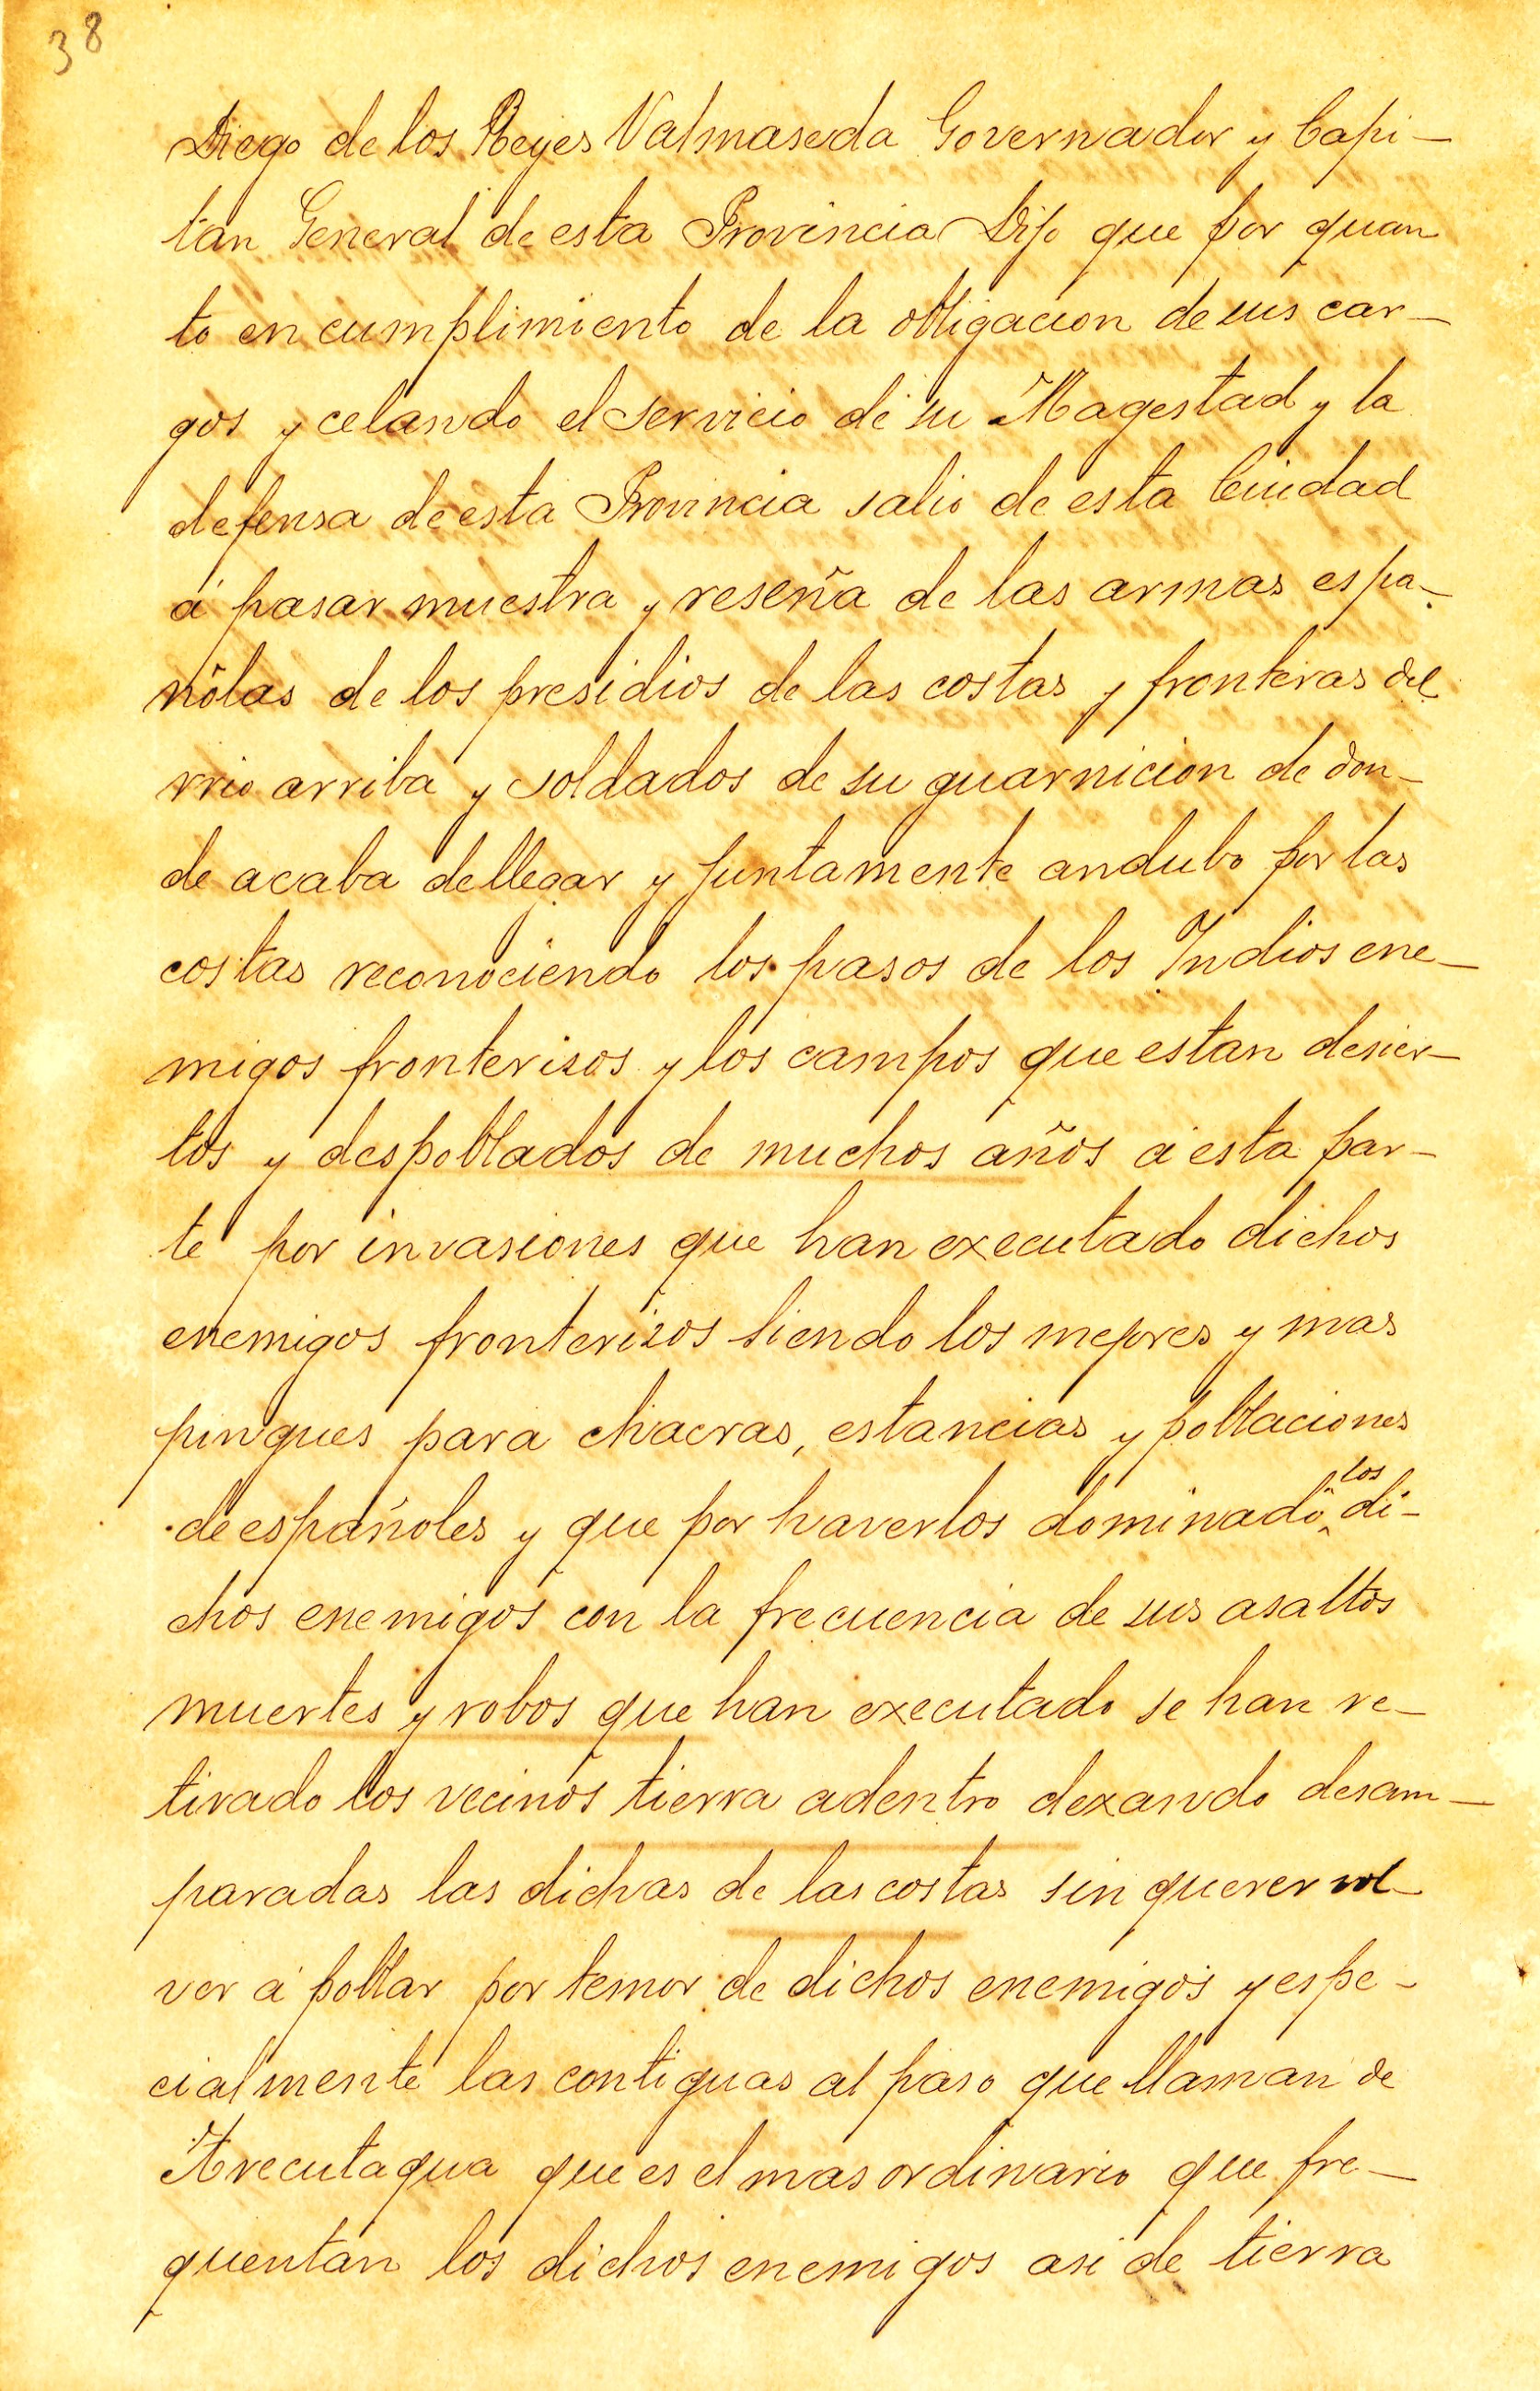 38
Diego de los Reyes Valmaseda Governador y Capi-
tan General de esta Provincia Dijo que por quan
to en cumplimiento de la obligacion de sus car-
gos y celando el servicio de su Magestad y la
defensa de esta Provincia salio de esta Ciudad
á pasar muestra y reseña de las armas espa-
ñolas de los presidios de las costas y fronteras del
rrio arriba y soldados de su guarnicion de don-
de acaba de llegar y juntamente andubo por las
costas reconociendo los pasos de los Indios ene-
migos fronterisos y los campos que estan desier-
tos y despoblados de muchos años á esta par-
te por invasiones que han executado dichos
enemigos fronterisos siendo los mejores y mas
pingues para chacras, estancias y poblaciones
de españoles y que por haverlos dominado los di-
chos enemigos con la frecuencia de sus asaltos
muertes y robos que han executado se han re-
tirado los vecinos tierra adentro dexando desam-
paradas las dichas de las costas sin querer vol-
ver á poblar por temor de dichos enemigos y espe-
cialmente las contiguas al paso que llaman de
Arecutaqua que es el mas ordinario que fre-
quentan los dichos enemigos asi de tierra